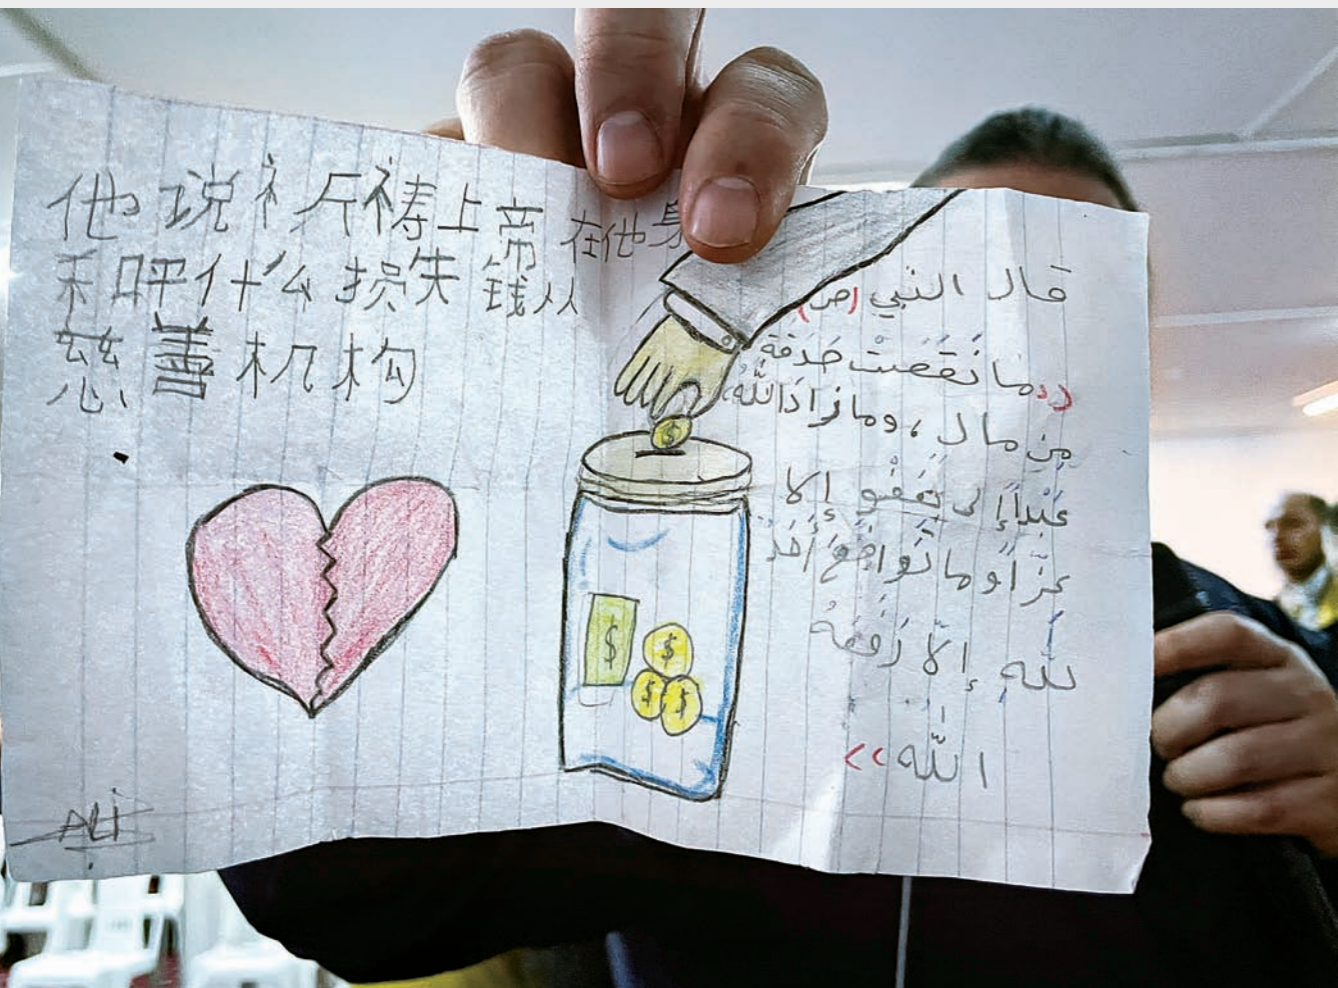 他说祈祷上帝在他身
和呼什么损失钱从
慈善机构
قال النبي (ص)
((ما نَقَصَتْ صَدَقة
مِن مال، وما زادَ اللَّهُ
عَبْداً إلا
عزّاً وما تَواضَعَ أَحَدٌ
للهِ إلّا رَفَعَهُ
اللّه>>
$
$
$
$
$
ALi